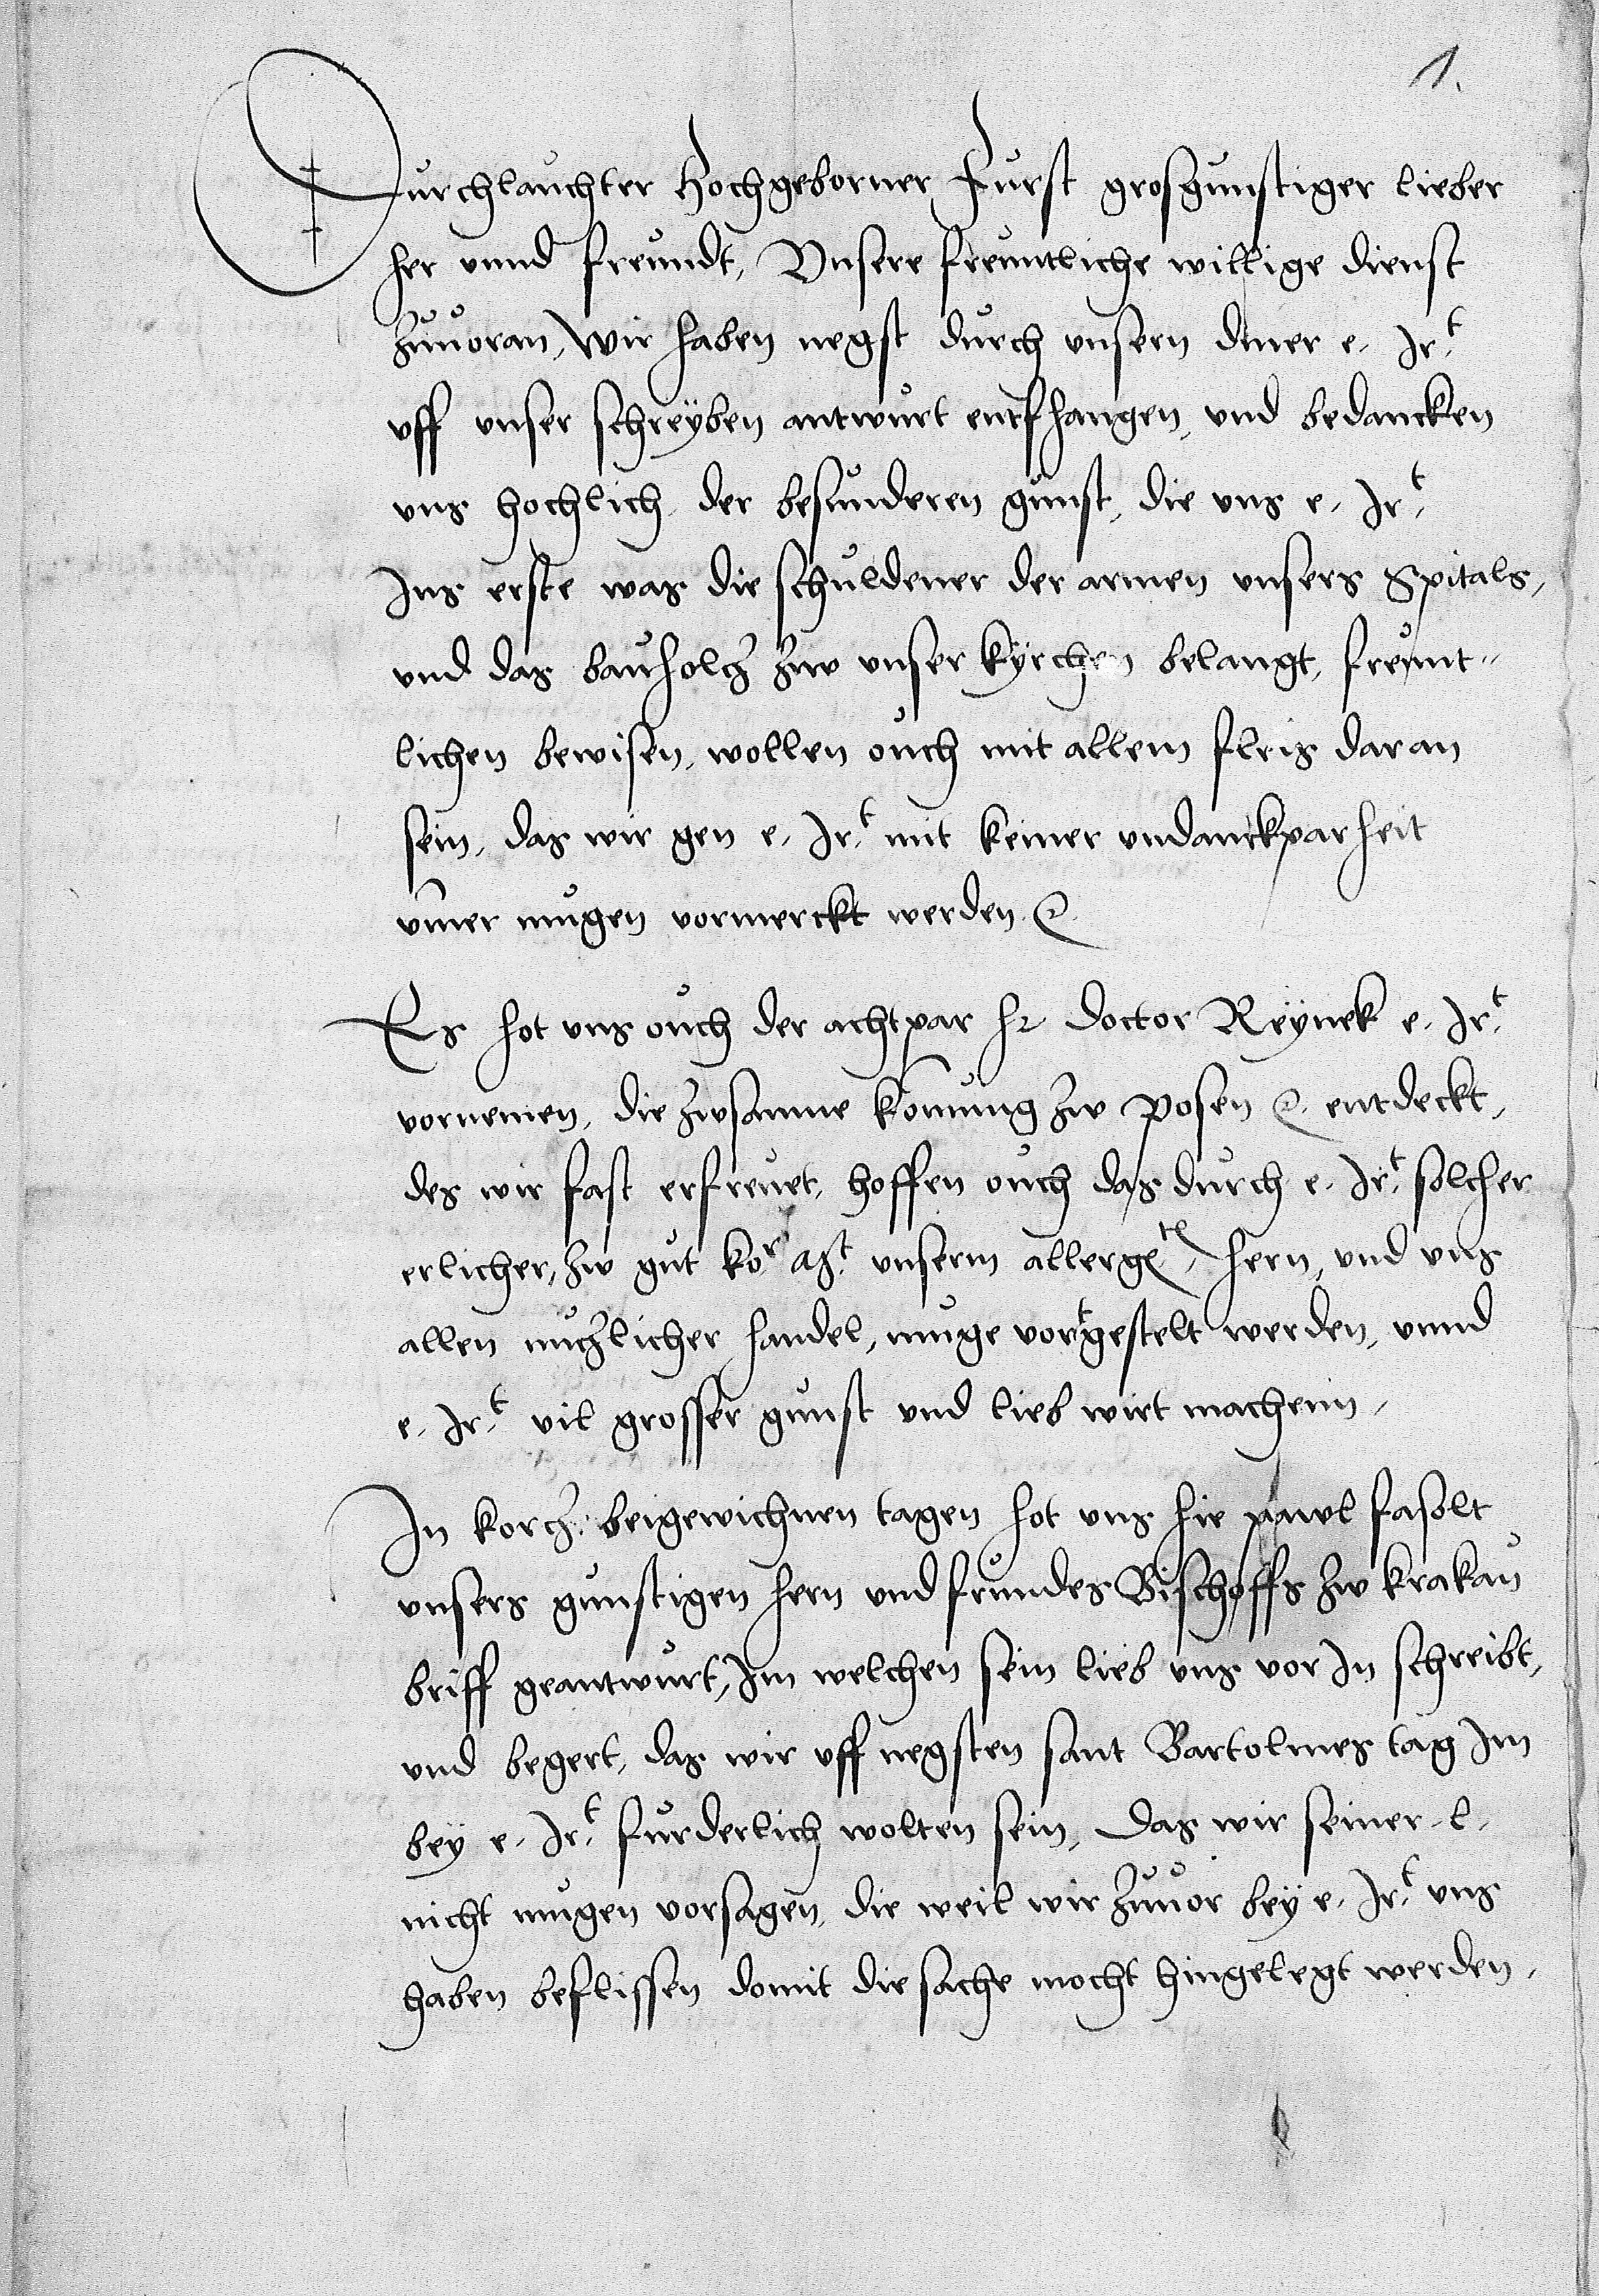 1.
Durchlauchter Hochgeborner Furst grosgunstiger lieber
her unnd freundt, Unsere freuntliche willige dienst
zuuoran, Wir haben negst durch unsern diner e. Irt.
uff unser schreyben antwurt entfhangen, und bedancken
uns hochlich der besunderen gunst, die uns e. Irt.
Ins erste was die schuldener der armen unsers Spitals,
und das bauholcz zw unser kyrchen belangt, freunt-
lichen bewisen, wollen ouch mit allem fleis daran
sein, das wir gen e. Irt. mit keiner undanckparheit
ummer mugen vormerckt werden &
Es hot uns ouch der achtpar hr doctor Reynek e. Irt.
vornemen, die zwsamne komung zw posen & entdeckt,
des wir fast erfreuet, hoffen ouch das durch e. Irt. solcher
erlicher, zw gut kor. Mt. unserm allergten hern, und uns
allen nuczlicher handel, muge vortgestelt werden, unnd
e. Irt. vil grosser gunst und lieb wirt machenn.
In korcz beigewichnen tagen hot uns hie pawl fasolt
unsers gunstigen hern und frundes Bischoffs zw krakau
briff geantwurt, Im welchen sein lieb uns vor In schreibt,
und begert, das wir uff negsten sant Bartolmes tag Im
bey e. Irt. furderlich wolten sein, das wir seiner l.
nicht mugen vorsagen, die weil wir zuuor bey e. Irt. uns
haben beflissen domit die sache mocht hingelegt werden.